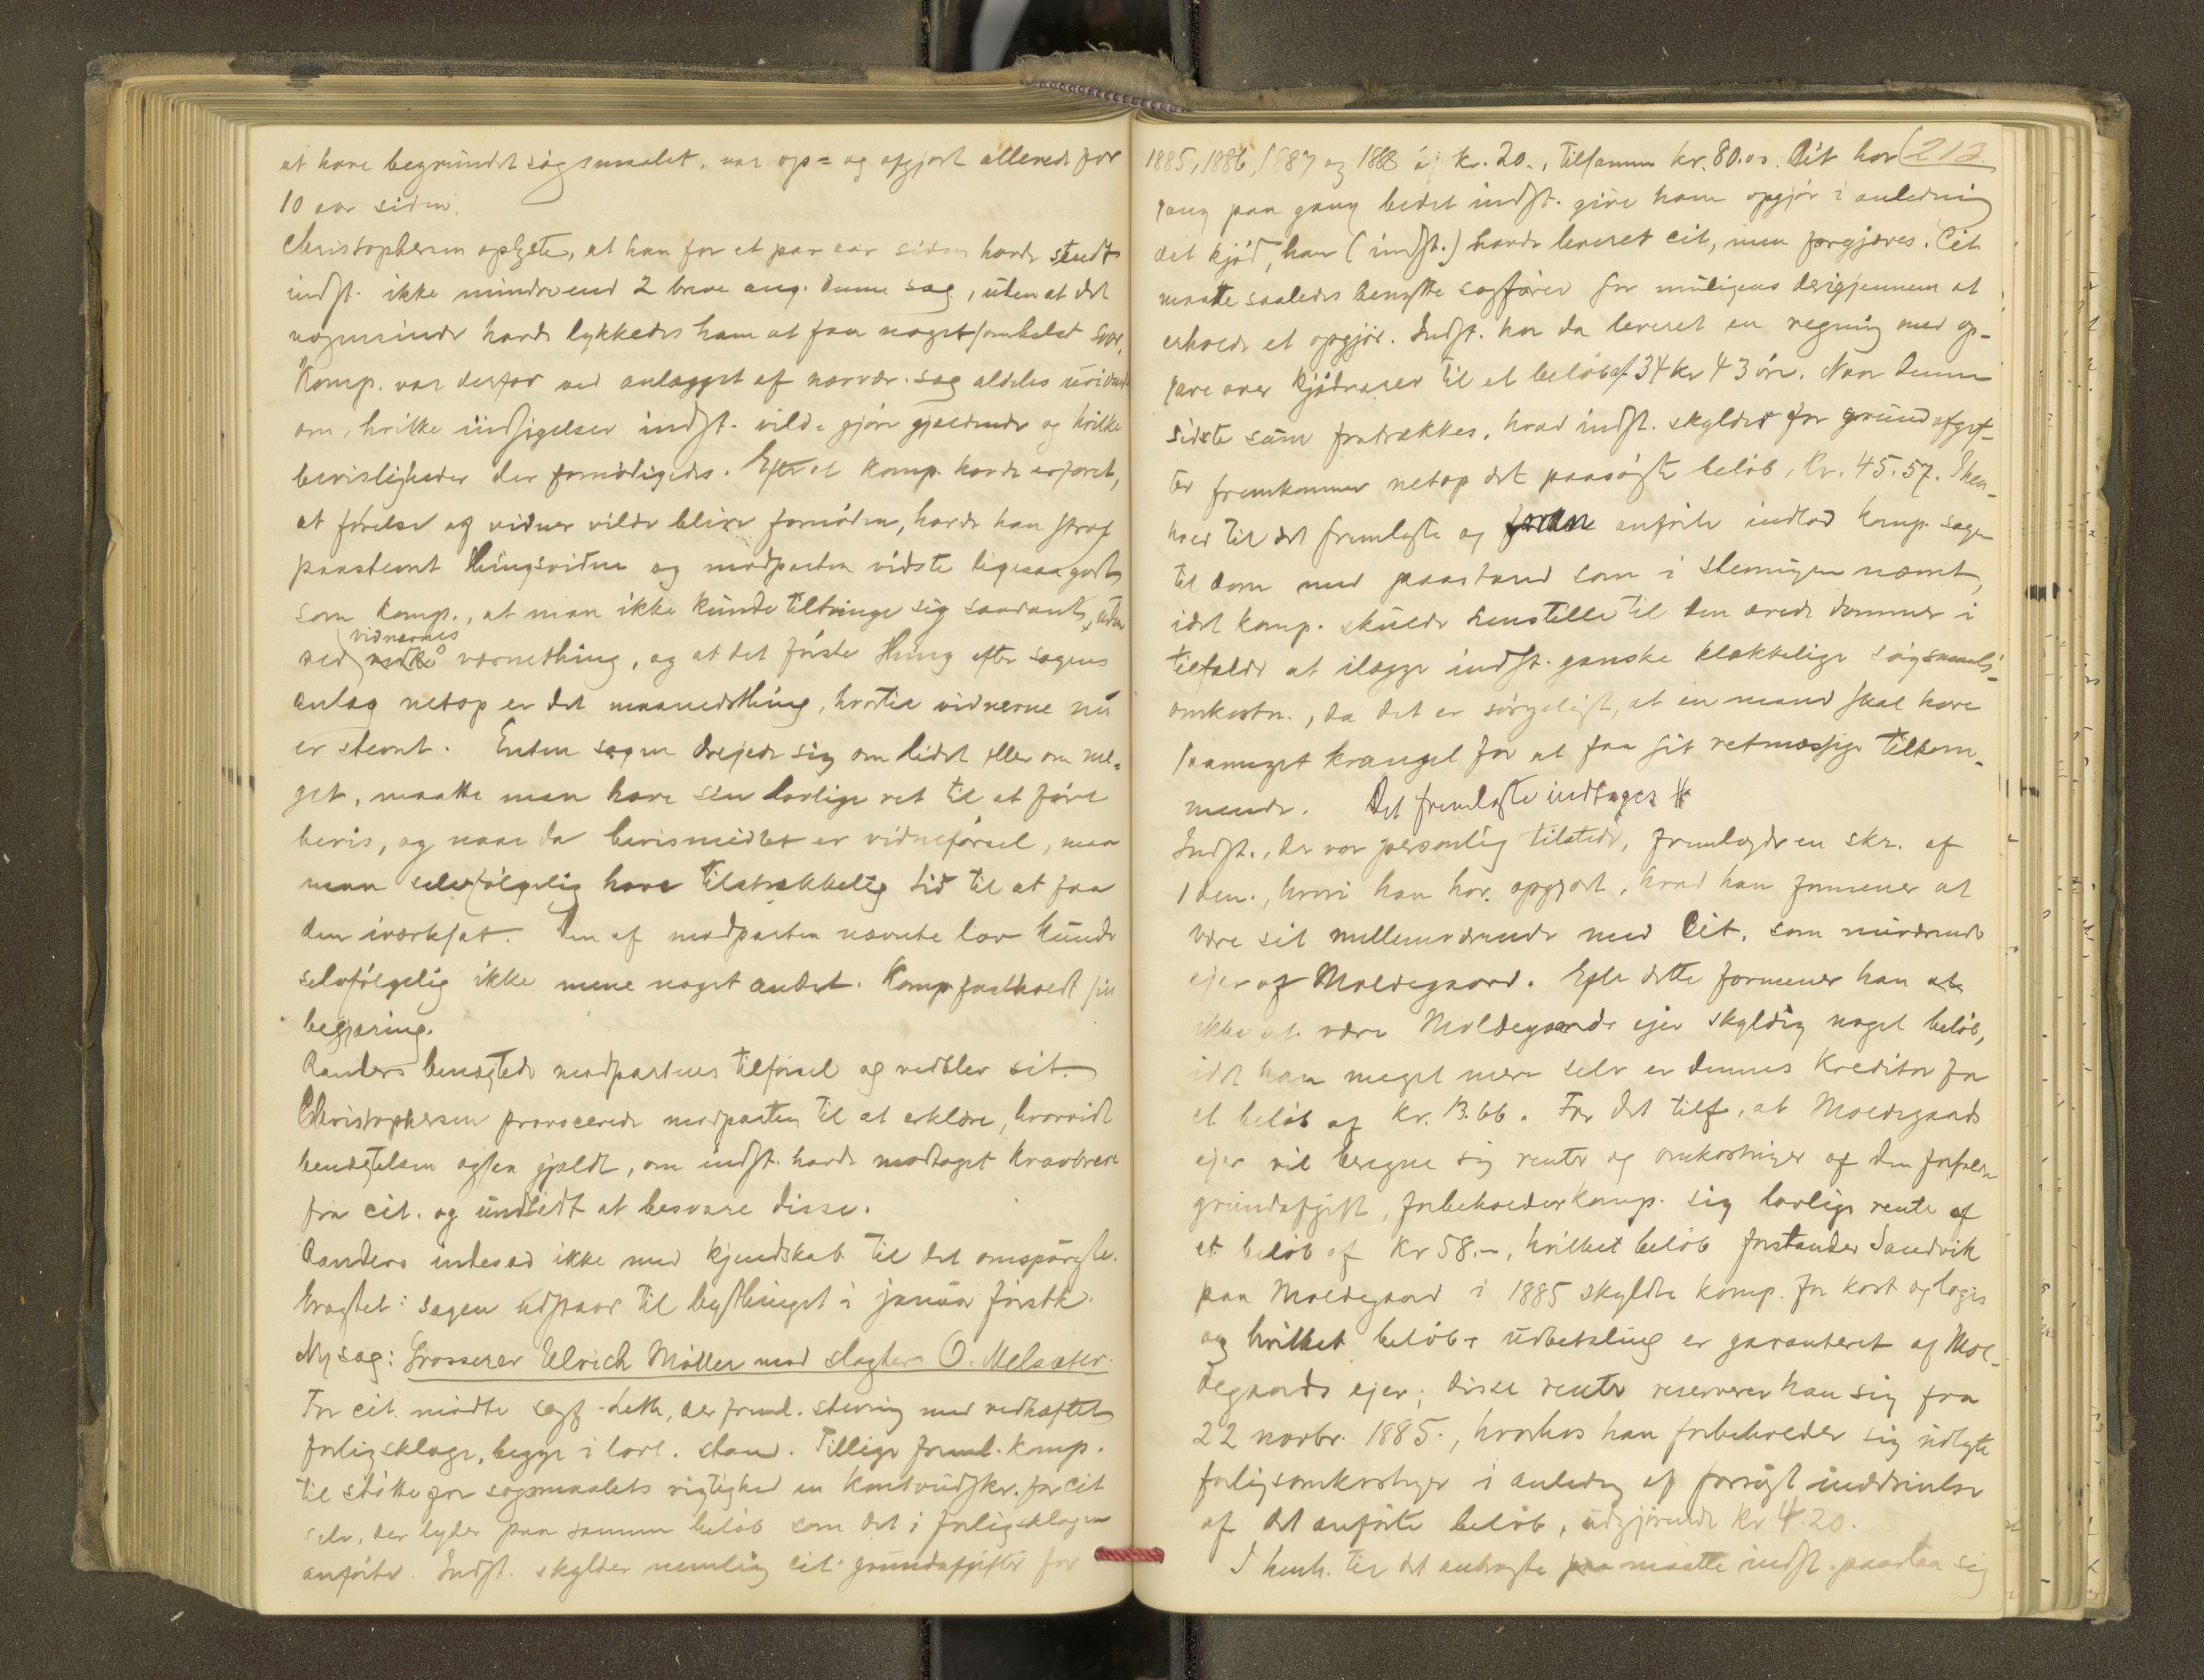 at have begrundet søgsmaalet, var op= og afgjort allerede for
10 aar siden.
Christophersen oplyste, at han for et par aar siden havde sendt
indst. ikke mindre end 2 breve ang. denne sag, uden at det
nogensinde havde lykkedes ham at faa noget somhelst svar.
Komp. var derfor ved anlægget af nærvær. sag aldeles uvidende
om, hvilke indsigelser indst. vilde gjøre gjældende og hvilke
bevisligheder der fornødigedes. Efter at komp. havde erfaret,
at førelse af vidner vilde blive fornøden, havde han strax
paastevnt thingsvidne og modparten vidste ligesaa godt
som komp., at man ikke kunde tiltvinge sig saadant, uden
ved vidnernes værnething, og at det første thing efter sagens
anlæg netop er det maanedsthing, hvortil vidnerne nu
er stevnt. Enten sagen drejede sig om lidet eller om me-
get, maatte man have sin lovlige ret til at føre
bevis, og naar da bevismidlet er vidneførsel, maa
man selvfølgelig have tilstrækkelig tid til at faa
den iværksat. Den af modparten nævnte lov kunde
selvfølgelig ikke mene noget andet. Komp. fastholdt sin
begjæring.
Randers benægtede modpartens tilførsel og vedblev sit.
Christophersen provocerede modparten til at erklære, hvorvidt
benægtelsen ogsaa gjaldt, om indst. havde modtaget kravbreve
fra cit. og undladt at besvare disse.
Randers indesad ikke med kjendskab til det omspørgte.
Eragtet: sagen udstaar til bythinget i januar førstk.
Ny sag: Grosserer Ulrich Møller mod slagter O. Melsæter.
For cit. mødte sagf. Leth, der freml. stevning med vedhæftet
forligsklage, begge i lovl. stand. Tillige freml. komp.
til støtte for søgsmaalets rigtighed en kontoudskr. fra cit
selv, der lyder paa samme beløb som det i forligsklagen
anførte. Indst. skylder nemlig cit. grundafgifter for
212
1885, 1886, 1887 og 1888 á kr. 20., tilsammen kr. 80.00. Cit. har
gang paa gang bedet indst. give ham opgjør i anledning
det kjød, han (indst.) havde leveret cit, men forgjæves. Cit.
maatte saaledes benytte sagfører for muligens derigjennem at
erholde et opgjør. Indst. har da leveret en regning med op-
gave over kjødvarer til et beløb af 34 kr 43 øre. Naar denne
sidste sum fradrækkes, hvad indst. skylder for grundafgif-
ter fremkommer netop det paasøgte beløb, kr. 45.57. I hen-
hold til det fremlagte og anførte indlod komp. sagen
til dom med paastand som i stevningen nævnt,
idet komp. skulde henstille til den ærede dommer i
tilfælde at ilægge indst. ganske klækkelige søgsmaals-
omkostn., da det er sørgeligt, at en mand skal have
saameget krangel for at faa sit retmæssige tilkom-
mende. Det fremlagte indtages #
Indst., der var personlig tilstede, fremlagde en skr. af
1 den., hvori han har opgjort, hvad han formener at
være sit mellemværende med Cit. som nuværende
ejer af Moldegaard. Efter dette formener han
ikke at være Moldegaards ejer skyldig noget beløb,
idet han meget mere selv er dennes kreditor for
et beløb af kr. 13.66. For det tilf., at Moldegaards
ejer vil beregne sig renter og omkostninger af den forfaldne
grundafgift, forbeholder komp. sig lovlige rente af
et beløb af kr 58.–, hvilket beløb forstander Sandvik
paa Moldegaard i 1885 skyldte komp. for kost og logis
og hvilket beløbs udbetaling er garanteret af Mol-
degaards ejer; disse renter reserverer han sig fra
22 novbr. 1885., hvorhos han forbeholder sig udlagte
forligsomkostninger i anledng af forsøgt inddrivelse
af det anførte beløb, udgjørende kr 4.20.
I henh. til det anbragte maatte indst. paastaa sig